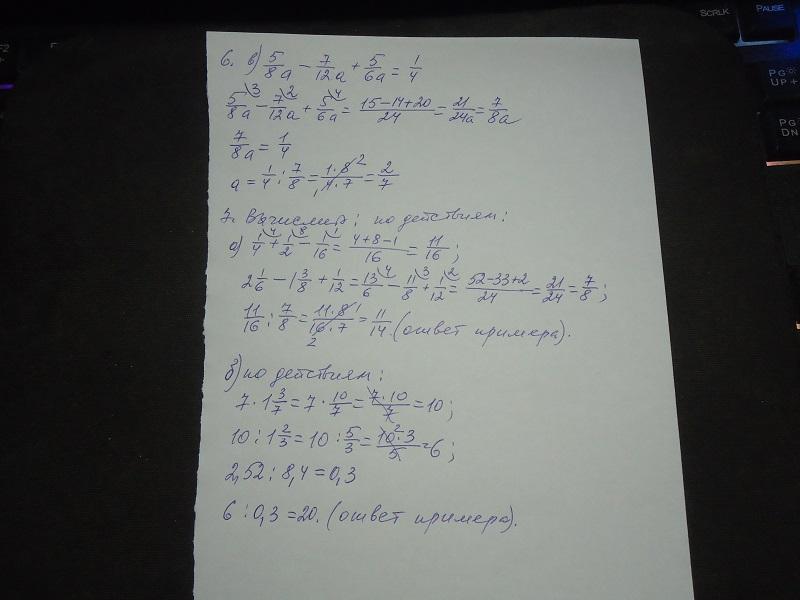 SCRLK
PAUSE
F2
PG UP +
PG DN
6. в) 5/8a − 7/12a + 5/6a = 1/4
5/8a ⁽³ − 7/12a ⁽² + 5/6a ⁽⁴ = (15−14+20)/24 = 21/24a = 7/8a
7/8a = 1/4
a = 1/4 : 7/8 = (1·8²)/(₁4·7) = 2/7
7. Вычислить: по действиям:
а) 1/4 ⁽⁴ + 1/2 ⁽⁸ − 1/16 ⁽¹ = (4+8−1)/16 = 11/16;
2 1/6 − 1 3/8 + 1/12 = 13/6 ⁽⁴ − 11/8 ⁽³ + 1/12 ⁽² = (52−33+2)/24 = 21/24 = 7/8;
11/16 : 7/8 = (11·8¹)/(16₂·7) = 11/14. (ответ примера).
б) по действиям:
7 · 1 3/7 = 7 · 10/7 = (7·10)/7 = 10;
10 : 1 2/3 = 10 : 5/3 = (10²·3)/5 = 6;
2,52 : 8,4 = 0,3
6 : 0,3 = 20. (ответ примера).